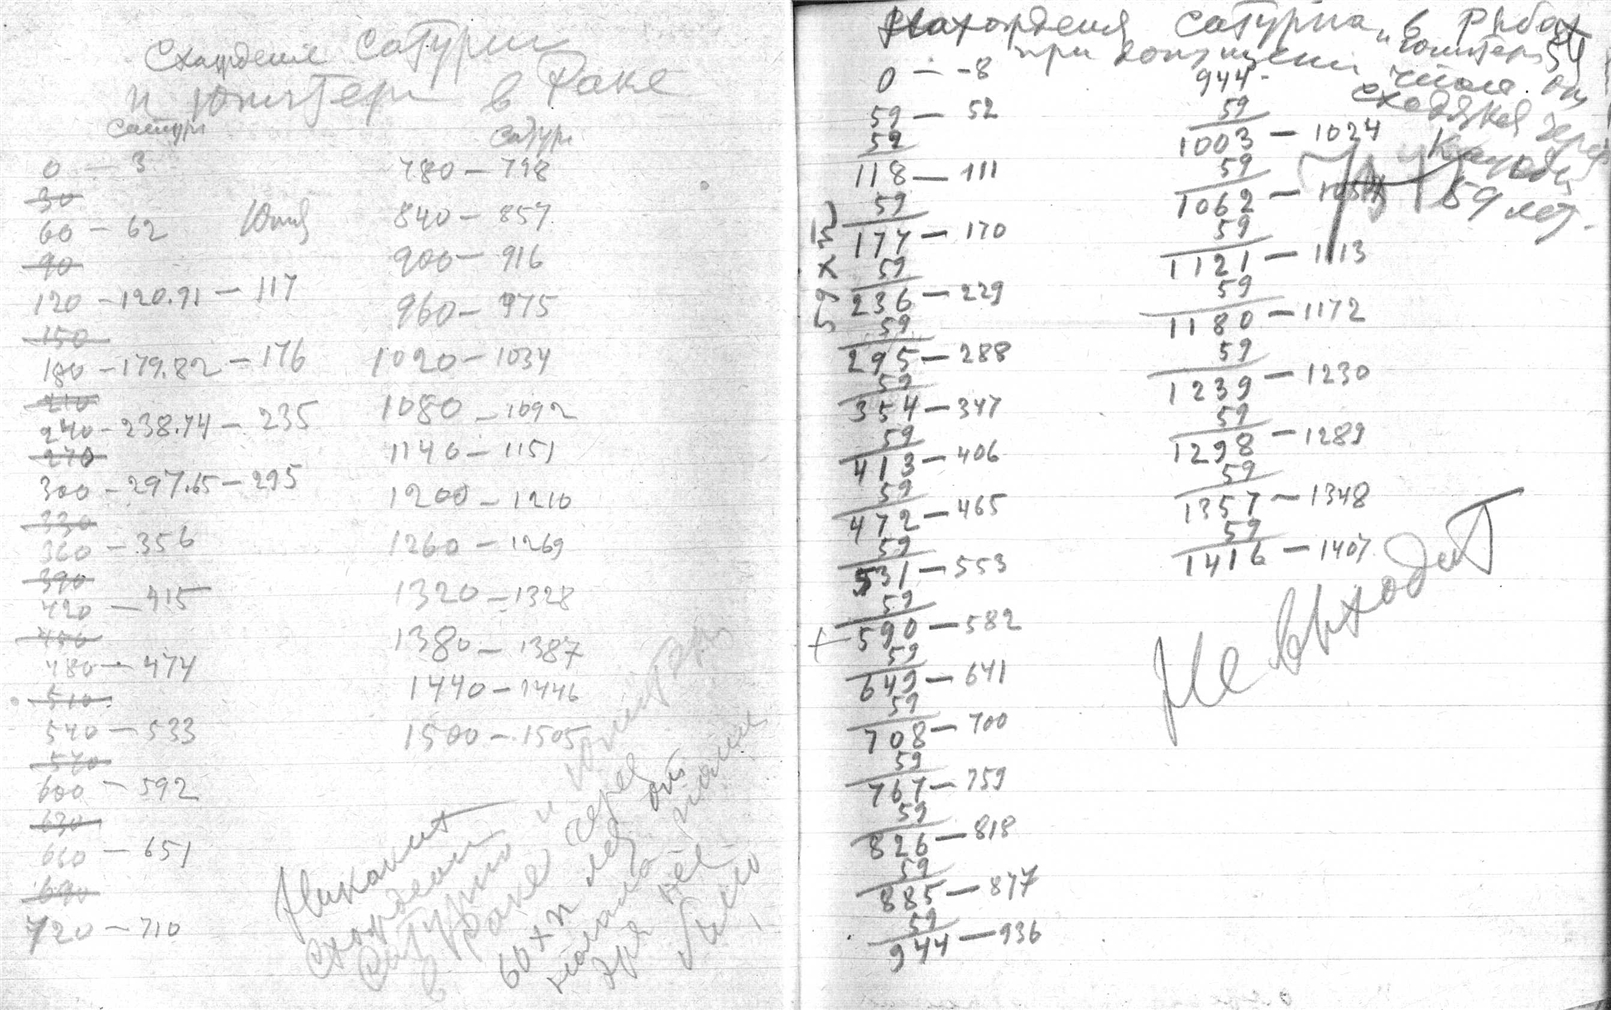 Схождение Сатурна
и Юпитера в Раке
сатурн
0 — 3
30
60 — 62
90
120 — 120.91 — 117
150
180 — 179.82 — 176
210
240 — 238.74 — 235
270
300 — 297.65 — 295
330
360 — 356
390
420 — 415
450
480 — 474
510
540 — 533
570
600 — 592
630
660 — 651
690
720 — 710
сатурн
780 — 798
840 — 857
900 — 916
960 — 975
1020 — 1034
1080 — 1092
1140 — 1151
1200 — 1210
1260 — 1269
1320 — 1328
1380 — 1387
1440 — 1446
1500 — 1505
Никаких
схождений
Сатурна и Юпитера
в Раке через
60 × n лет от
начала нашей
эры не
было
Нахождения Сатурна в Рыбах
и Юпитера
при допущении, что они
сходятся через
каждые
59 лет.
59 × n
0 — -8
59 — 52
59
118 — 111
59
177 — 170
59
236 — 229
59
295 — 288
59
354 — 347
59
413 — 406
59
472 — 465
59
531 — 553
59
590 — 582
59
649 — 641
59
708 — 700
59
767 — 759
59
826 — 818
59
885 — 877
59
944 — 936
944
59
1003 — 1024
59
1062 —
59
1121 — 1113
59
1180 — 1172
59
1239 — 1230
59
1298 — 1289
59
1357 — 1348
59
1416 — 1407
Не выходит